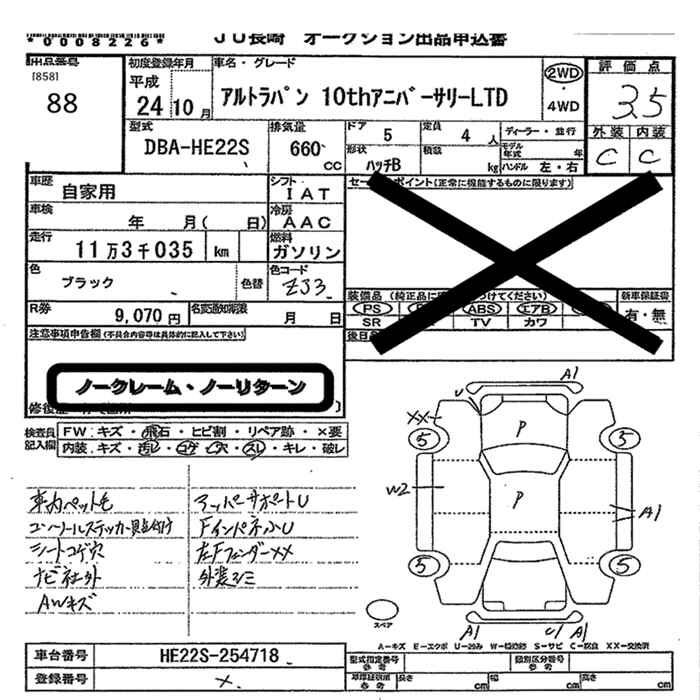 *0008226*
JU長崎 オークション出品申込書
出品番号
[858]
88
初度登録年月
平成
24年10月
車名・グレード
アルトラパン 10thアニバーサリーLTD
2WD
・
4WD
評価点
3.5
外装 内装
C C
型式
DBA-HE22S
排気量
660
CC
ドア
5
定員
4人
ディーラー・並行
形状
ハッチB
積載
kg
モデル年式 年
ハンドル 左・右
車歴
自家用
シフト
IAT
車検
年 月( 日)
冷房
AAC
走行
11万3千035 km
燃料
ガソリン
色
ブラック
色替
色コード
ZJ3
R券
9,070円
名変通知期限
月 日
セールスポイント(正常に機能するものに限ります)
装備品
PS
ABS
エアB
SR
TV
カワ
新車保証書
有・無
後日
注意事項申告欄(不具合内容等は具体的に記入して下さい)
ノークレーム・ノーリターン
検査員
記入欄
FW:キズ・飛石・ヒビ割・リペア跡・×要
内装:キズ・汚レ・コゲ・穴・スレ・キレ・破レ
車内ペット毛
コンソールステッカー貼付け
シートコゲ穴
ナビ社外
AWキズ
アッパーサポートU
FインパネふU
左Fフェンダー××
外装シミ
A1
U
XX
P
5
5
W2
P
A1
5
5
A1
U1
A1
スペア
A-キズ E-エクボ U-凹み W-補修跡 S-サビ C-腐食 XX-交換済
車台番号
HE22S-254718
登録番号
×
型式指定番号
参考
類別区分番号
参考
車輌諸寸法
参考
長さ
cm
幅
cm
高さ
cm